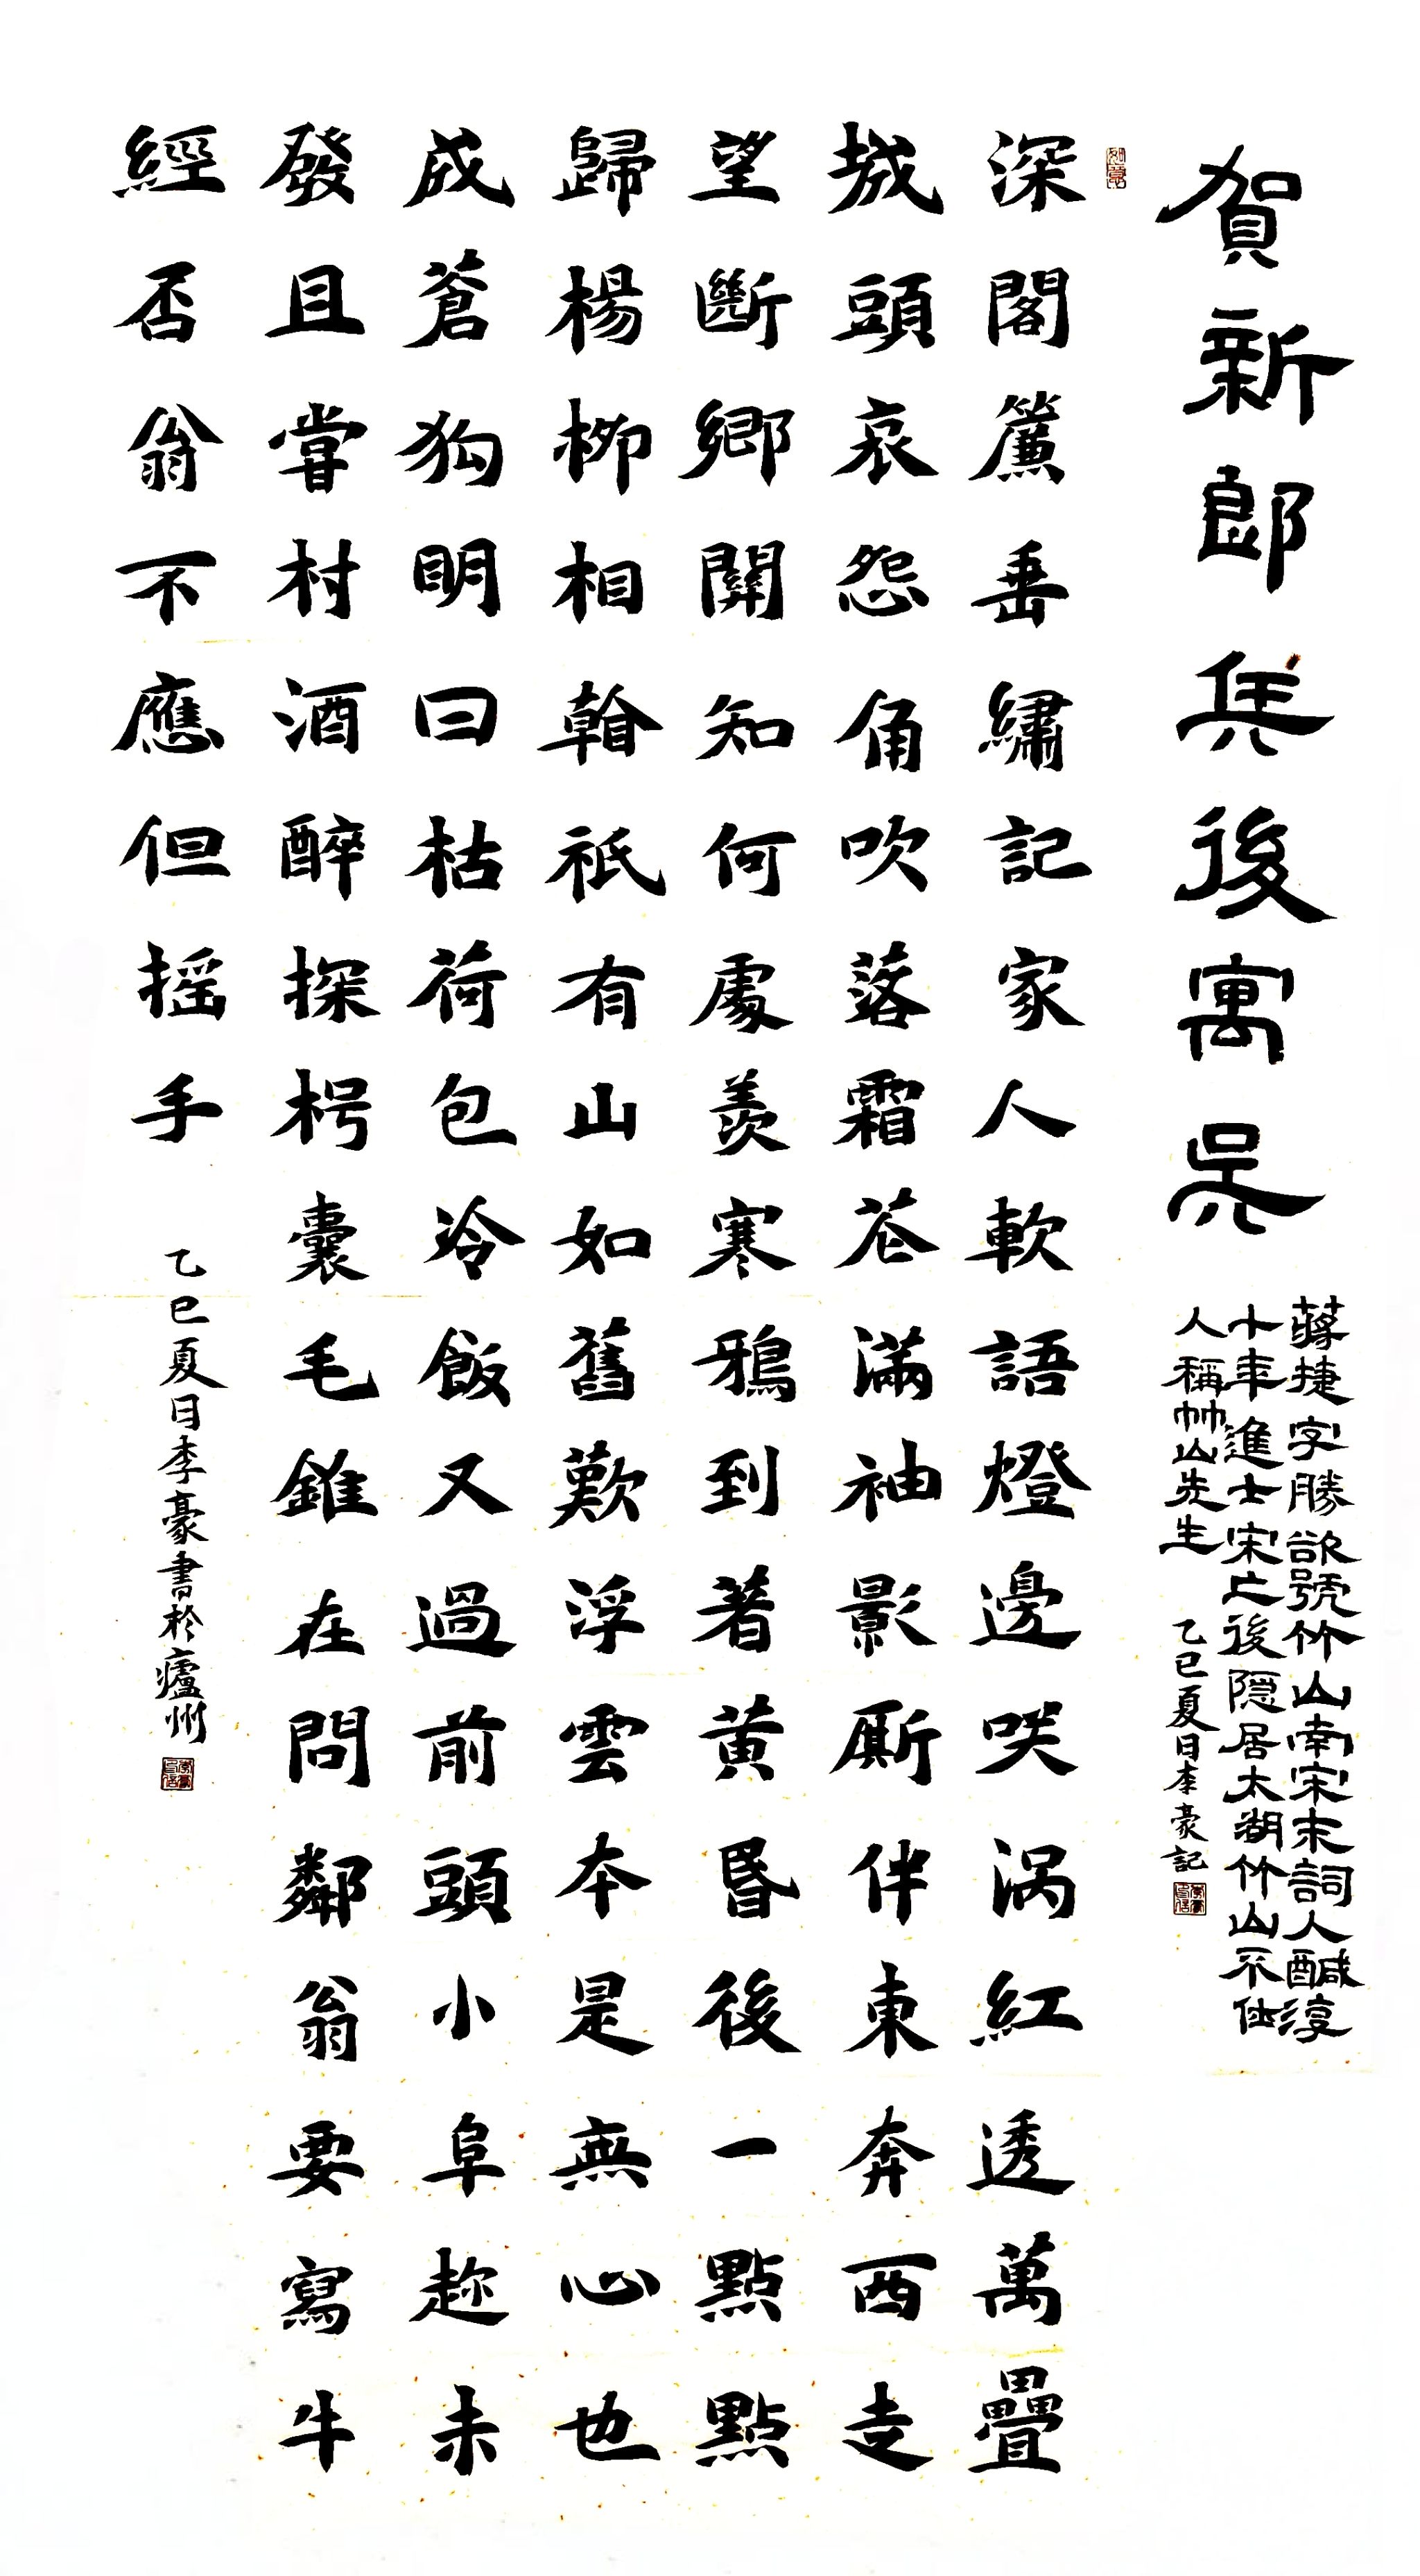 賀新郎兵後寓吳
蔣捷字勝欲號竹山南宋末詞人醎淳
十年進士宋亡後隐居太湖竹山不仕
人稱竹山先生
乙巳夏日李豪記
如意
深閣簾垂繡記家人軟語燈邊咲涡紅透萬疊
城頭哀怨角吹落霜花滿袖影厮伴東奔西走
望斷鄉關知何處羨寒鴉到著黃昏後一點點
歸楊柳相翰祇有山如舊歎浮雲本是無心也
成蒼狗明日枯荷包冷飯又過前頭小阜趂未
發且嘗村酒醉探枵囊毛錐在問鄰翁要寫牛
經否翁不應但搖手
乙巳夏日李豪書於廬州